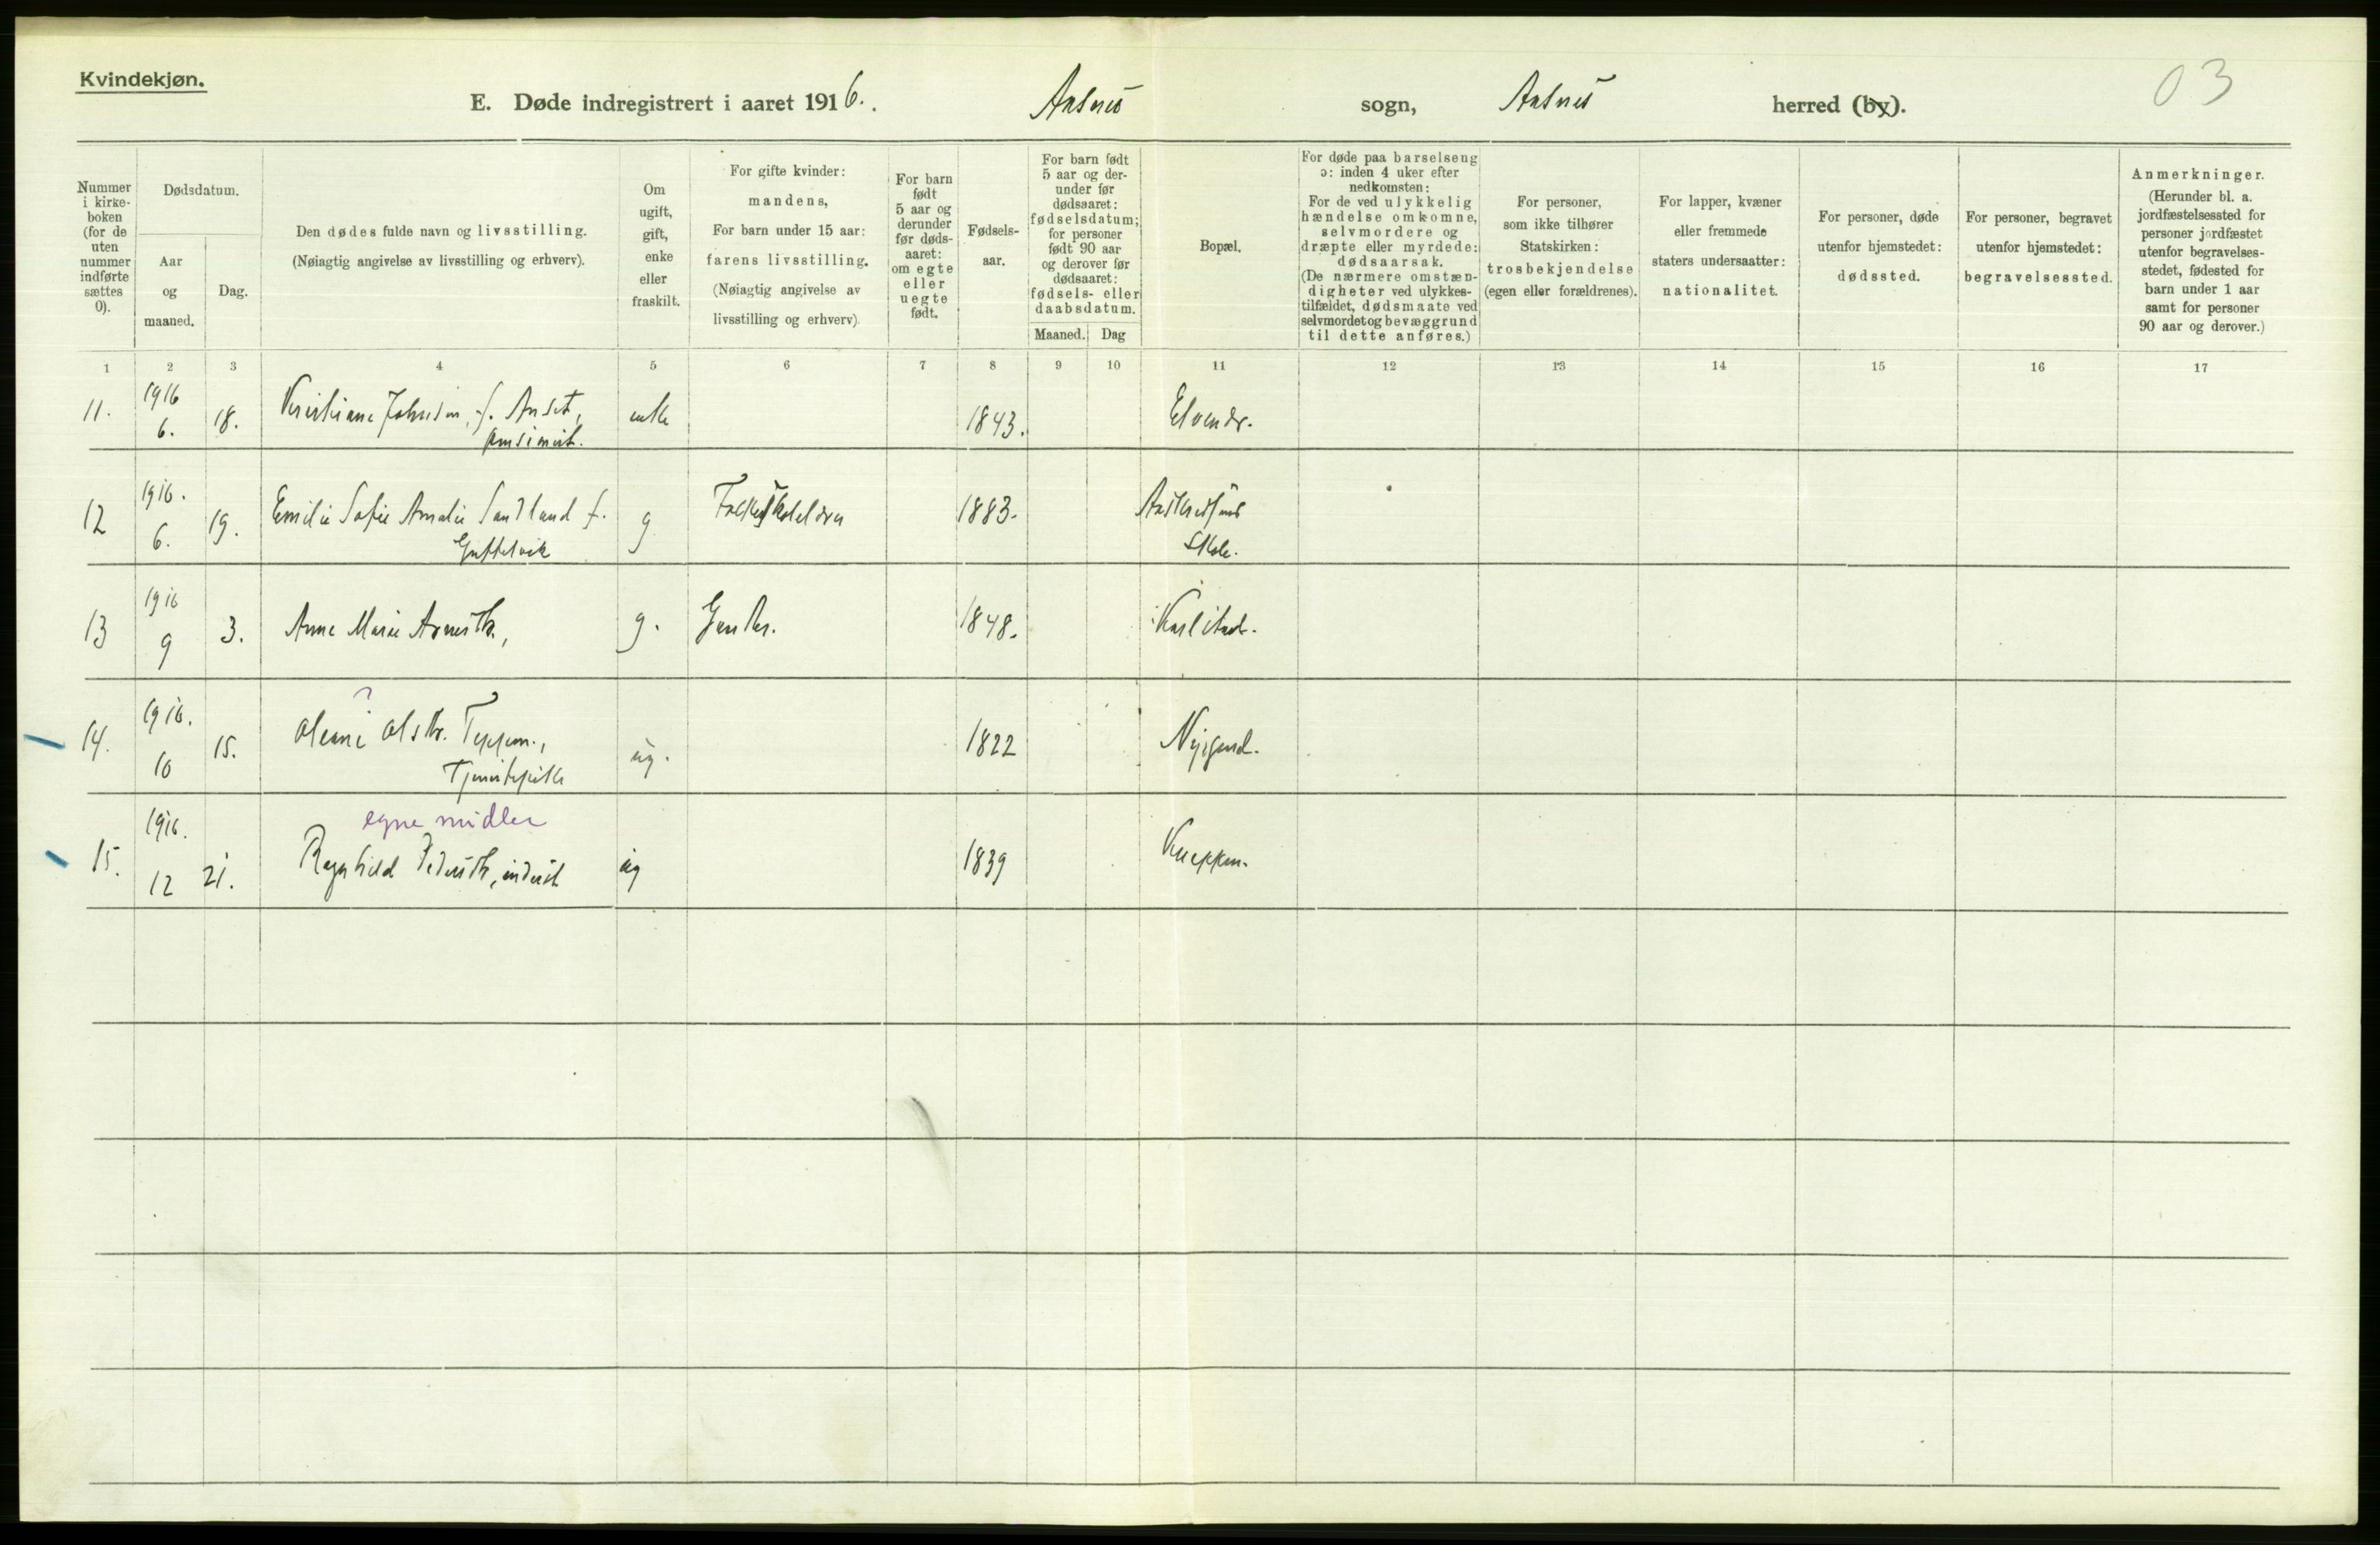 Kvindekjøn.
E. Døde indregistrert i aaret 1916. Aasnes sogn, Aasnes herred (by).
03
Nummer i kirke-boken (for de uten nummer indførte sættes 0).
Dødsdatum.
Aar og maaned.
Dag.
Den dødes fulde navn og livsstilling.
(Nøiagtig angivelse av livsstilling og erhverv).
Om ugift, gift, enke eller fraskilt.
For gifte kvinder:
mandens,
For barn under 15 aar:
farens livsstilling.
(Nøiagtig angivelse av
livsstilling og erhverv).
For barn født 5 aar og derunder før døds-aaret: om egte eller uegte født.
Fødsels-aar.
For barn født 5 aar og der-under før dødsaaret: fødselsdatum; for personer født 90 aar og derover før dødsaaret: fødsels- eller daabsdatum.
Maaned. Dag
Bopæl.
For døde paa barselseng ɔ: inden 4 uker efter nedkomsten:
For de ved ulykkelig hændelse omkomne, selvmordere og dræpte eller myrdede: dødsaarsak.
(De nærmere omstæn-digheter ved ulykkes-tilfældet, dødsmaate ved selvmordet og bevæggrund til dette anføres.)
For personer, som ikke tilhører Statskirken: trosbekjendelse (egen eller forældrenes).
For lapper, kvæner eller fremmede staters undersaatter: nationalitet.
For personer, døde utenfor hjemstedet: dødssted.
For personer, begravet utenfor hjemstedet: begravelsessted.
Anmerkninger.
(Herunder bl. a. jordfæstelsessted for personer jordfæstet utenfor begravelses-stedet, fødested for barn under 1 aar samt for personer 90 aar og derover.)
1 2 3 4 5 6 7 8 9 10 11 12 13 14 15 16 17
11. 1916 6. 18. Kristiane Johnsen, f. Anset, enke 1843.
12 1916. 6. 19. Emilie Sofie Amalie Sandland f. g 1883.
Skole.
13 1916 9 3. Anne Marie Arnesdtr., g. Gaardbr. 1848. Karlstad.
14. 1916. 10 15. ? Oleane Olsdtr. Teppen., ug. 1822 Nygaard.
Tjenestepike
egne midler
15. 1916. 12 21. Ragnhild Pedersdtr, inderst ug 1839 Kneppen.